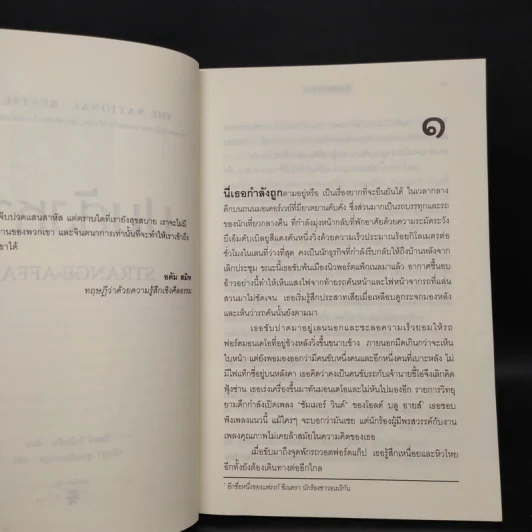 จ็บปวดแสนสาหัส แต่ตราบใดที่เรายังสุขสบาย เราจะไม่มี
านของพวกเขา และจินตนาการเท่านั้นที่จะทำให้เราเข้าถึง
ขาได้
อดัม สมิท
ทฤษฎีว่าด้วยความรู้สึกเชิงศีลธรรม
๑
นี่เธอกำลังถูกตามอยู่หรือ เป็นเรื่องยากที่จะยืนยันได้ ในเวลากลาง
ดึกบนถนนมอเตอร์เวย์ที่มียวดยานคับคั่ง ซึ่งส่วนมากเป็นรถบรรทุกและรถ
ของนักเที่ยวกลางคืน ที่กำลังมุ่งหน้ากลับที่พักอาศัยด้วยความระมัดระวัง
บีเอ็มดับเบิลยูสีแดงคันหนึ่งวิ่งด้วยความเร็วประมาณร้อยกิโลเมตรต่อ
ชั่วโมงในเลนที่ว่างที่สุด คงเป็นนักธุรกิจที่กำลังรีบกลับให้ถึงบ้านหลังจาก
เลิกประชุม ขณะนี้เธอขับพ้นเมืองนิวพอร์ตแพ็กเนลมาแล้ว อากาศชื้นอบ
อ้าวอย่างนี้ทำให้เห็นแสงไฟจากท้ายรถคันหน้าและไฟหน้าจากรถที่แล่น
สวนมาไม่ชัดเจน เธอเริ่มรู้สึกประสาทเสียเมื่อเหลือบดูกระจกมองหลัง
และเห็นว่ารถคันนั้นยังตามมา
เธอขับปาดมาอยู่เลนนอกและชะลอความเร็วยอมให้รถ
ฟอร์ดมอนเดโอที่อยู่ข้างหลังวิ่งขึ้นขนาบข้าง ภายนอกมืดเกินกว่าจะเห็น
ใบหน้า แต่ยังพอมองออกว่ามีคนขับหนึ่งคนและอีกหนึ่งคนที่เบาะหลัง ไม่
มีไฟแท็กซี่อยู่บนหลังคา เธอคิดว่าคงเป็นคนขับรถกับเจ้านายขี้โอ่จึงเลิกคิด
ฟุ้งซ่าน เธอเร่งเครื่องขึ้นมาทันมอนเดโอและไม่หันไปมองอีก รายการวิทยุ
ยามดึกกำลังเปิดเพลง “ซัมเมอร์ วินด์” ของโอลด์ บลู อายส์¹ เธอชอบ
ฟังเพลงแนวนี้ แม้ใครๆ จะบอกว่ามันเชย แต่นักร้องผู้มีพรสวรรค์กับงาน
เพลงคุณภาพไม่เคยล้าสมัยในความคิดของเธอ
เมื่อขับมาถึงจุดพักรถวอตฟอร์ดแก๊ป เธอรู้สึกเหนื่อยและหิวโหย
อีกทั้งยังต้องเดินทางต่ออีกไกล
¹ อีกชื่อหนึ่งของแฟรงก์ ซิเนตรา นักร้องชาวอเมริกัน